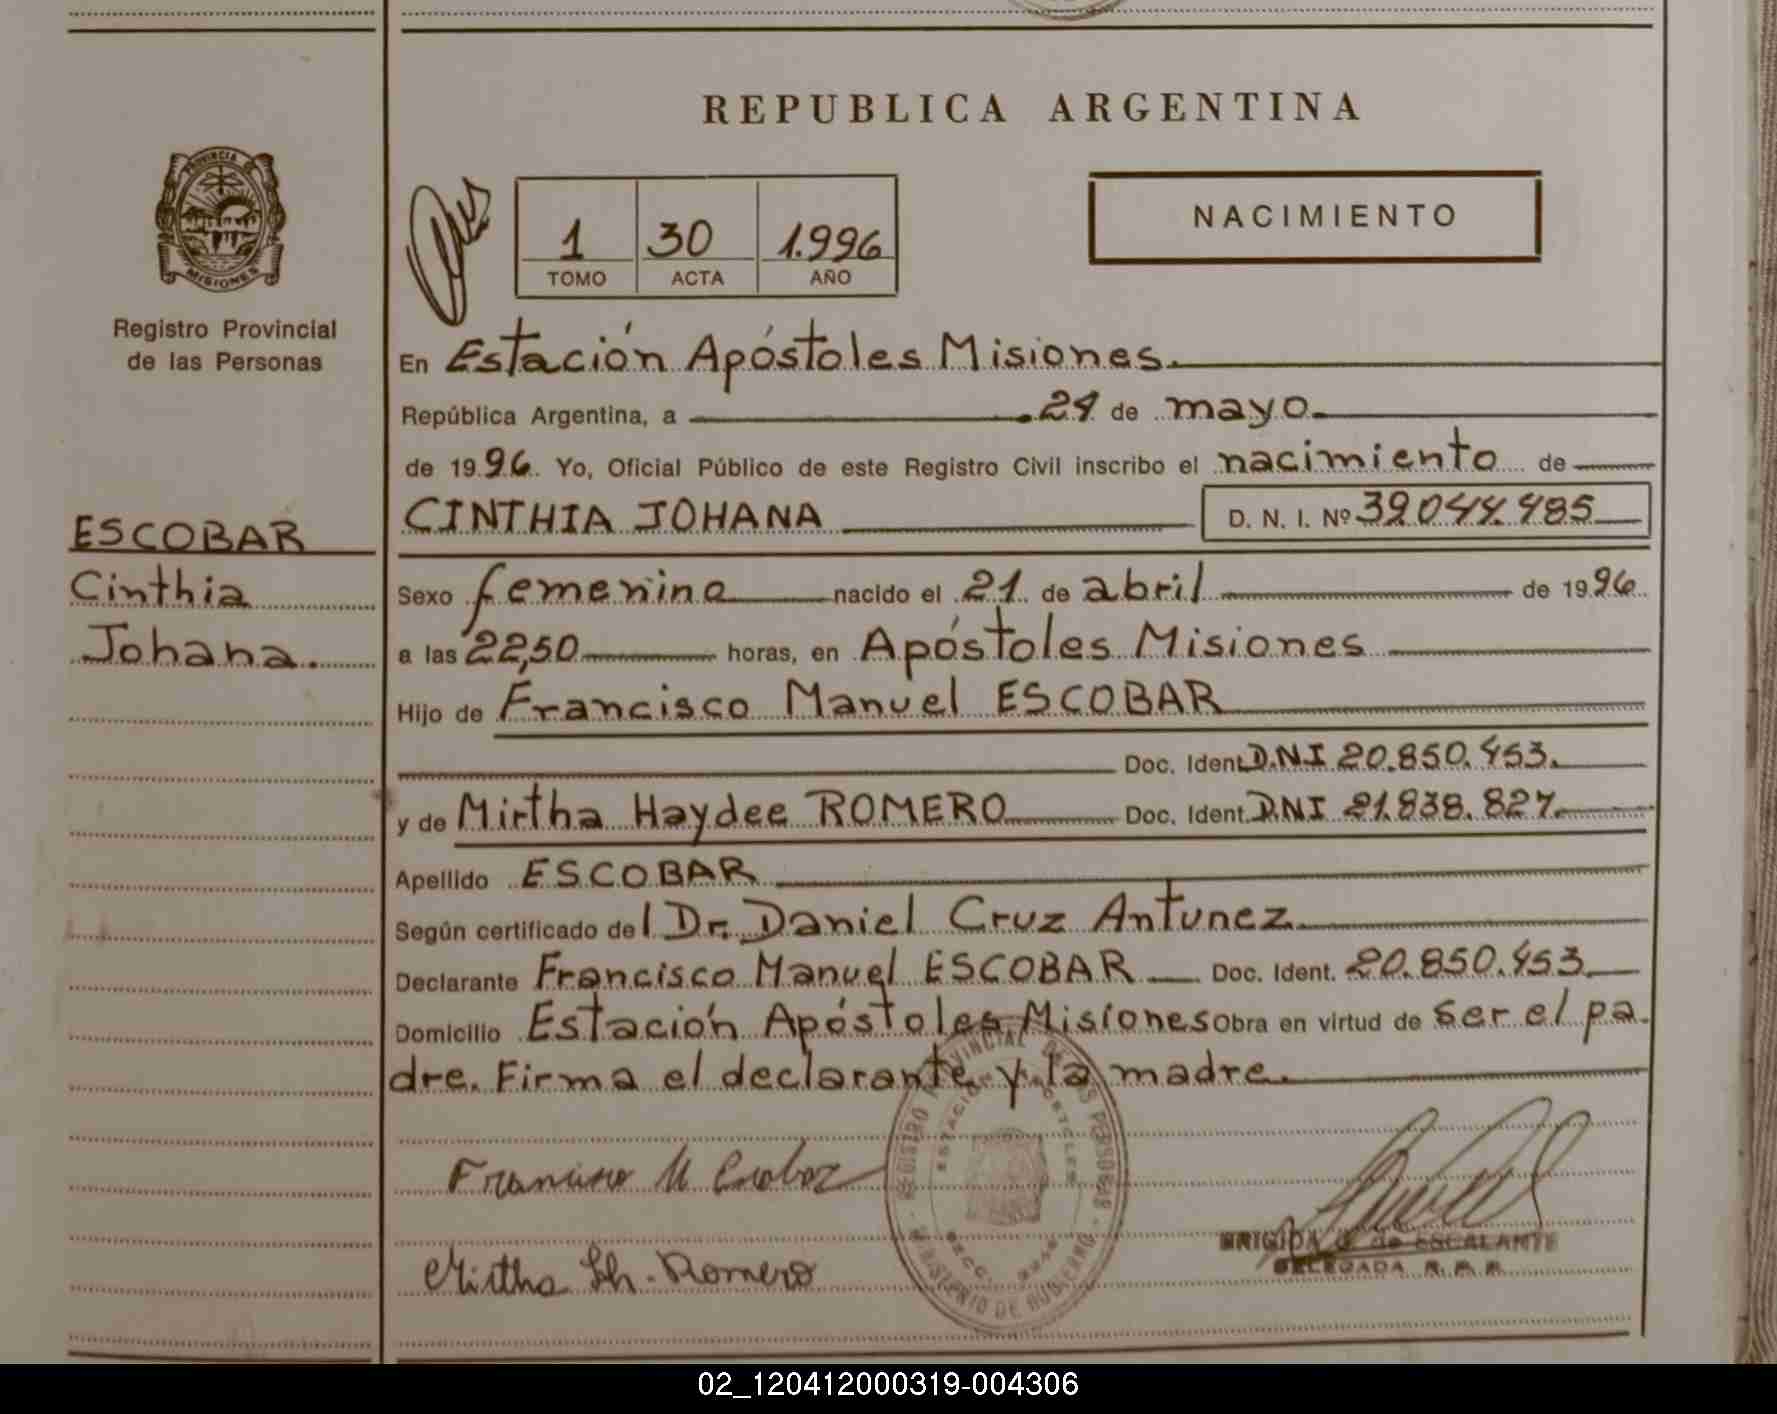 REPUBLICA ARGENTINA
PROVINCIA DE
MISIONES
Registro Provincial
de las Personas
1 30 1.996
TOMO ACTA AÑO
NACIMIENTO
En Estación Apóstoles Misiones.
República Argentina, a 24 de mayo
de 1996. Yo, Oficial Público de este Registro Civil inscribo el nacimiento de
ESCOBAR
Cinthia
Johana.
CINTHIA JOHANA D. N. I. Nº 39.044.485
Sexo femenino nacido el 21 de abril de 1996
a las 22,50 horas, en Apóstoles Misiones
Hijo de Francisco Manuel ESCOBAR
Doc. Ident. D.N.I 20.850.453.
y de Mirtha Haydee ROMERO Doc. Ident. DNI 21.838.827.
Apellido ESCOBAR
Según certificado del Dr. Daniel Cruz Antunez
Declarante Francisco Manuel ESCOBAR Doc. Ident. 20.850.453
Domicilio Estación Apóstoles Misiones Obra en virtud de ser el pa
dre. Firma el declarante y la madre.
REGISTRO PROVINCIAL DE LAS PERSONAS
MINISTERIO DE GOBIERNO
ESTACION APOSTOLES
Francisco M Escobar
Mirtha H. Romero
BRIGIDA G. de ESCALANTE
DELEGADA R.P.P.
02_120412000319-004306